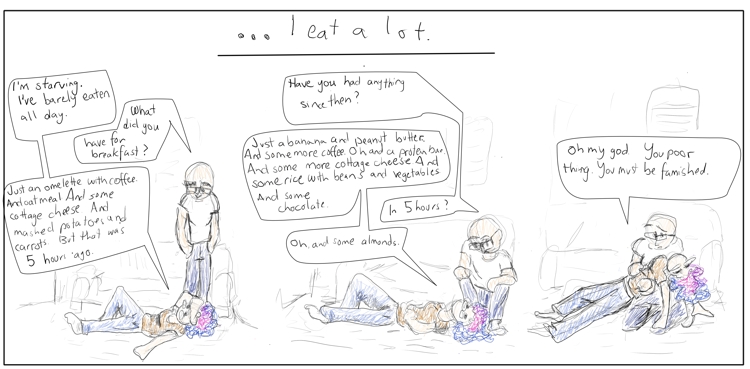 ... I eat a lot.
I'm starving.
I've barely eaten
all day.
What
did you
have for
breakfast?
Just an omelette with coffee.
And oatmeal And some
cottage cheese And
mashed potatoes and
carrots. But that was
5 hours ago.
Have you had anything
since then?
Just a banana and peanut butter.
And some more coffee. Oh and a protein bar
And some more cottage cheese And
some rice with beans and vegetables
And some
chocolate.
In 5 hours?
Oh, and some almonds.
Oh my god. You poor
thing. You must be famished.